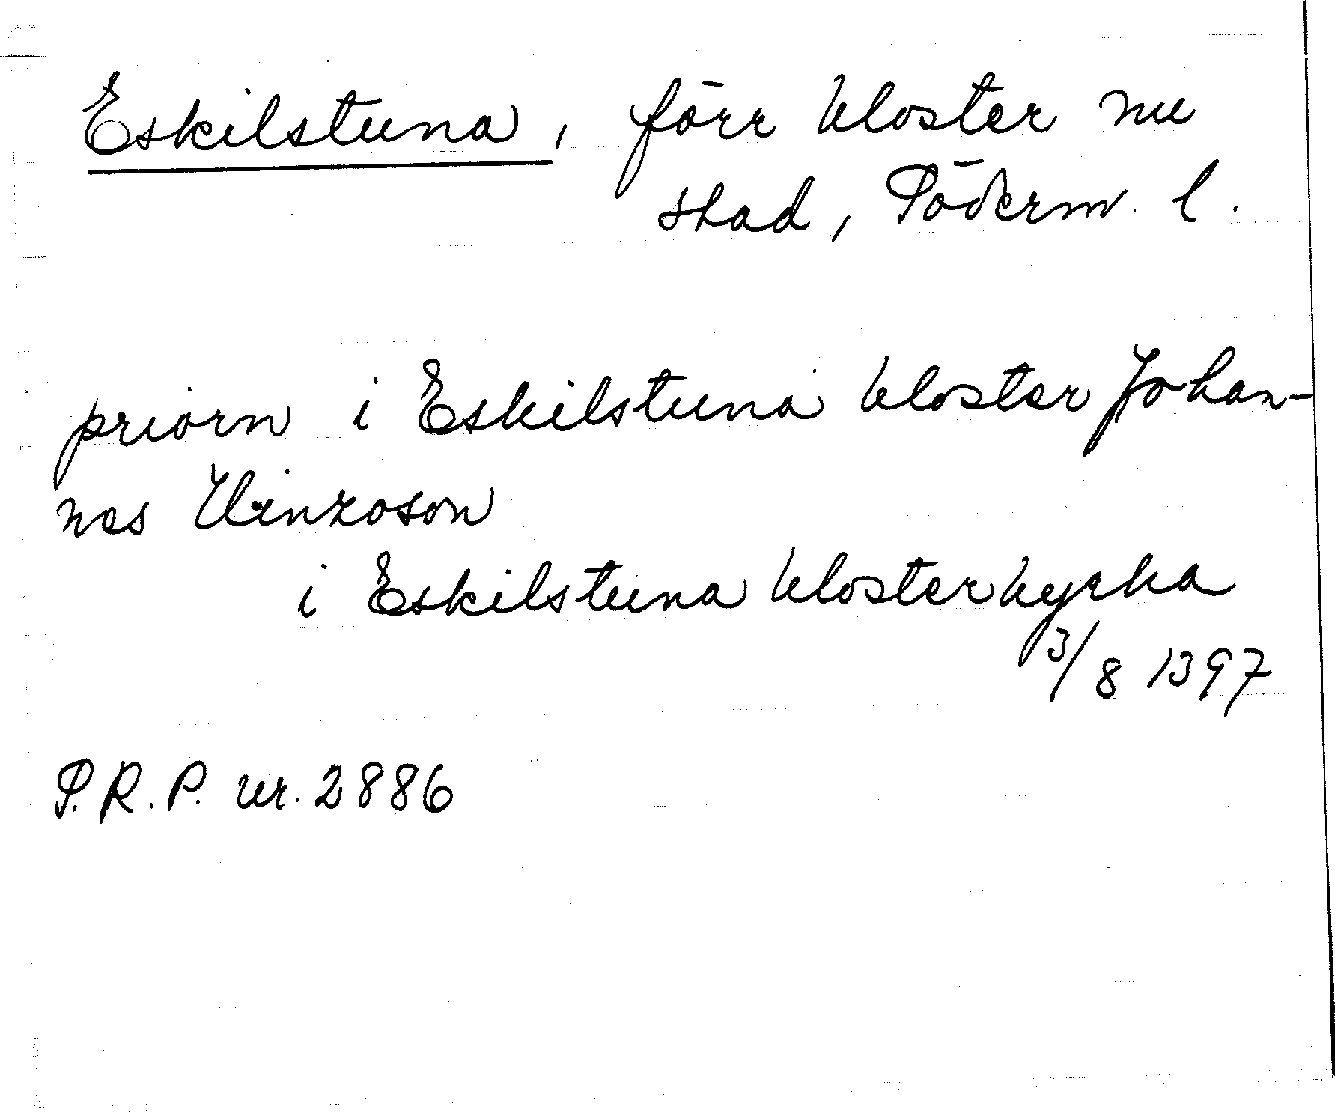 Eskilstuna, förr kloster nu
stad, Söderm. l.
priorn i Eskilstuna kloster Johan-
nes Hinzoson
i Eskilstuna klosterkyrka
3/8 1397
P.R.P. nr. 2886